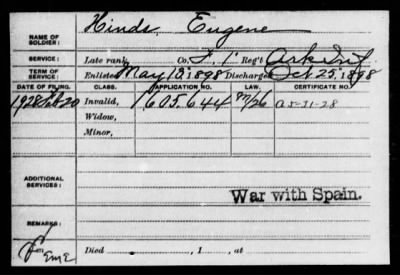 NAME OF SOLDIER: Hinds, Eugene
SERVICE: Late rank, Co. F, 1 Reg't Ark Inf
TERM OF SERVICE: Enlisted May 13, 1898 Discharged Oct 25, 1898
DATE OF FILING. CLASS. APPLICATION NO. LAW. CERTIFICATE NO.
1928 Feb 20 Invalid, 1605,644 A 5-31-28
Widow,
Minor,
ADDITIONAL SERVICES:
War with Spain.
REMARKS:
Died , 1 , at